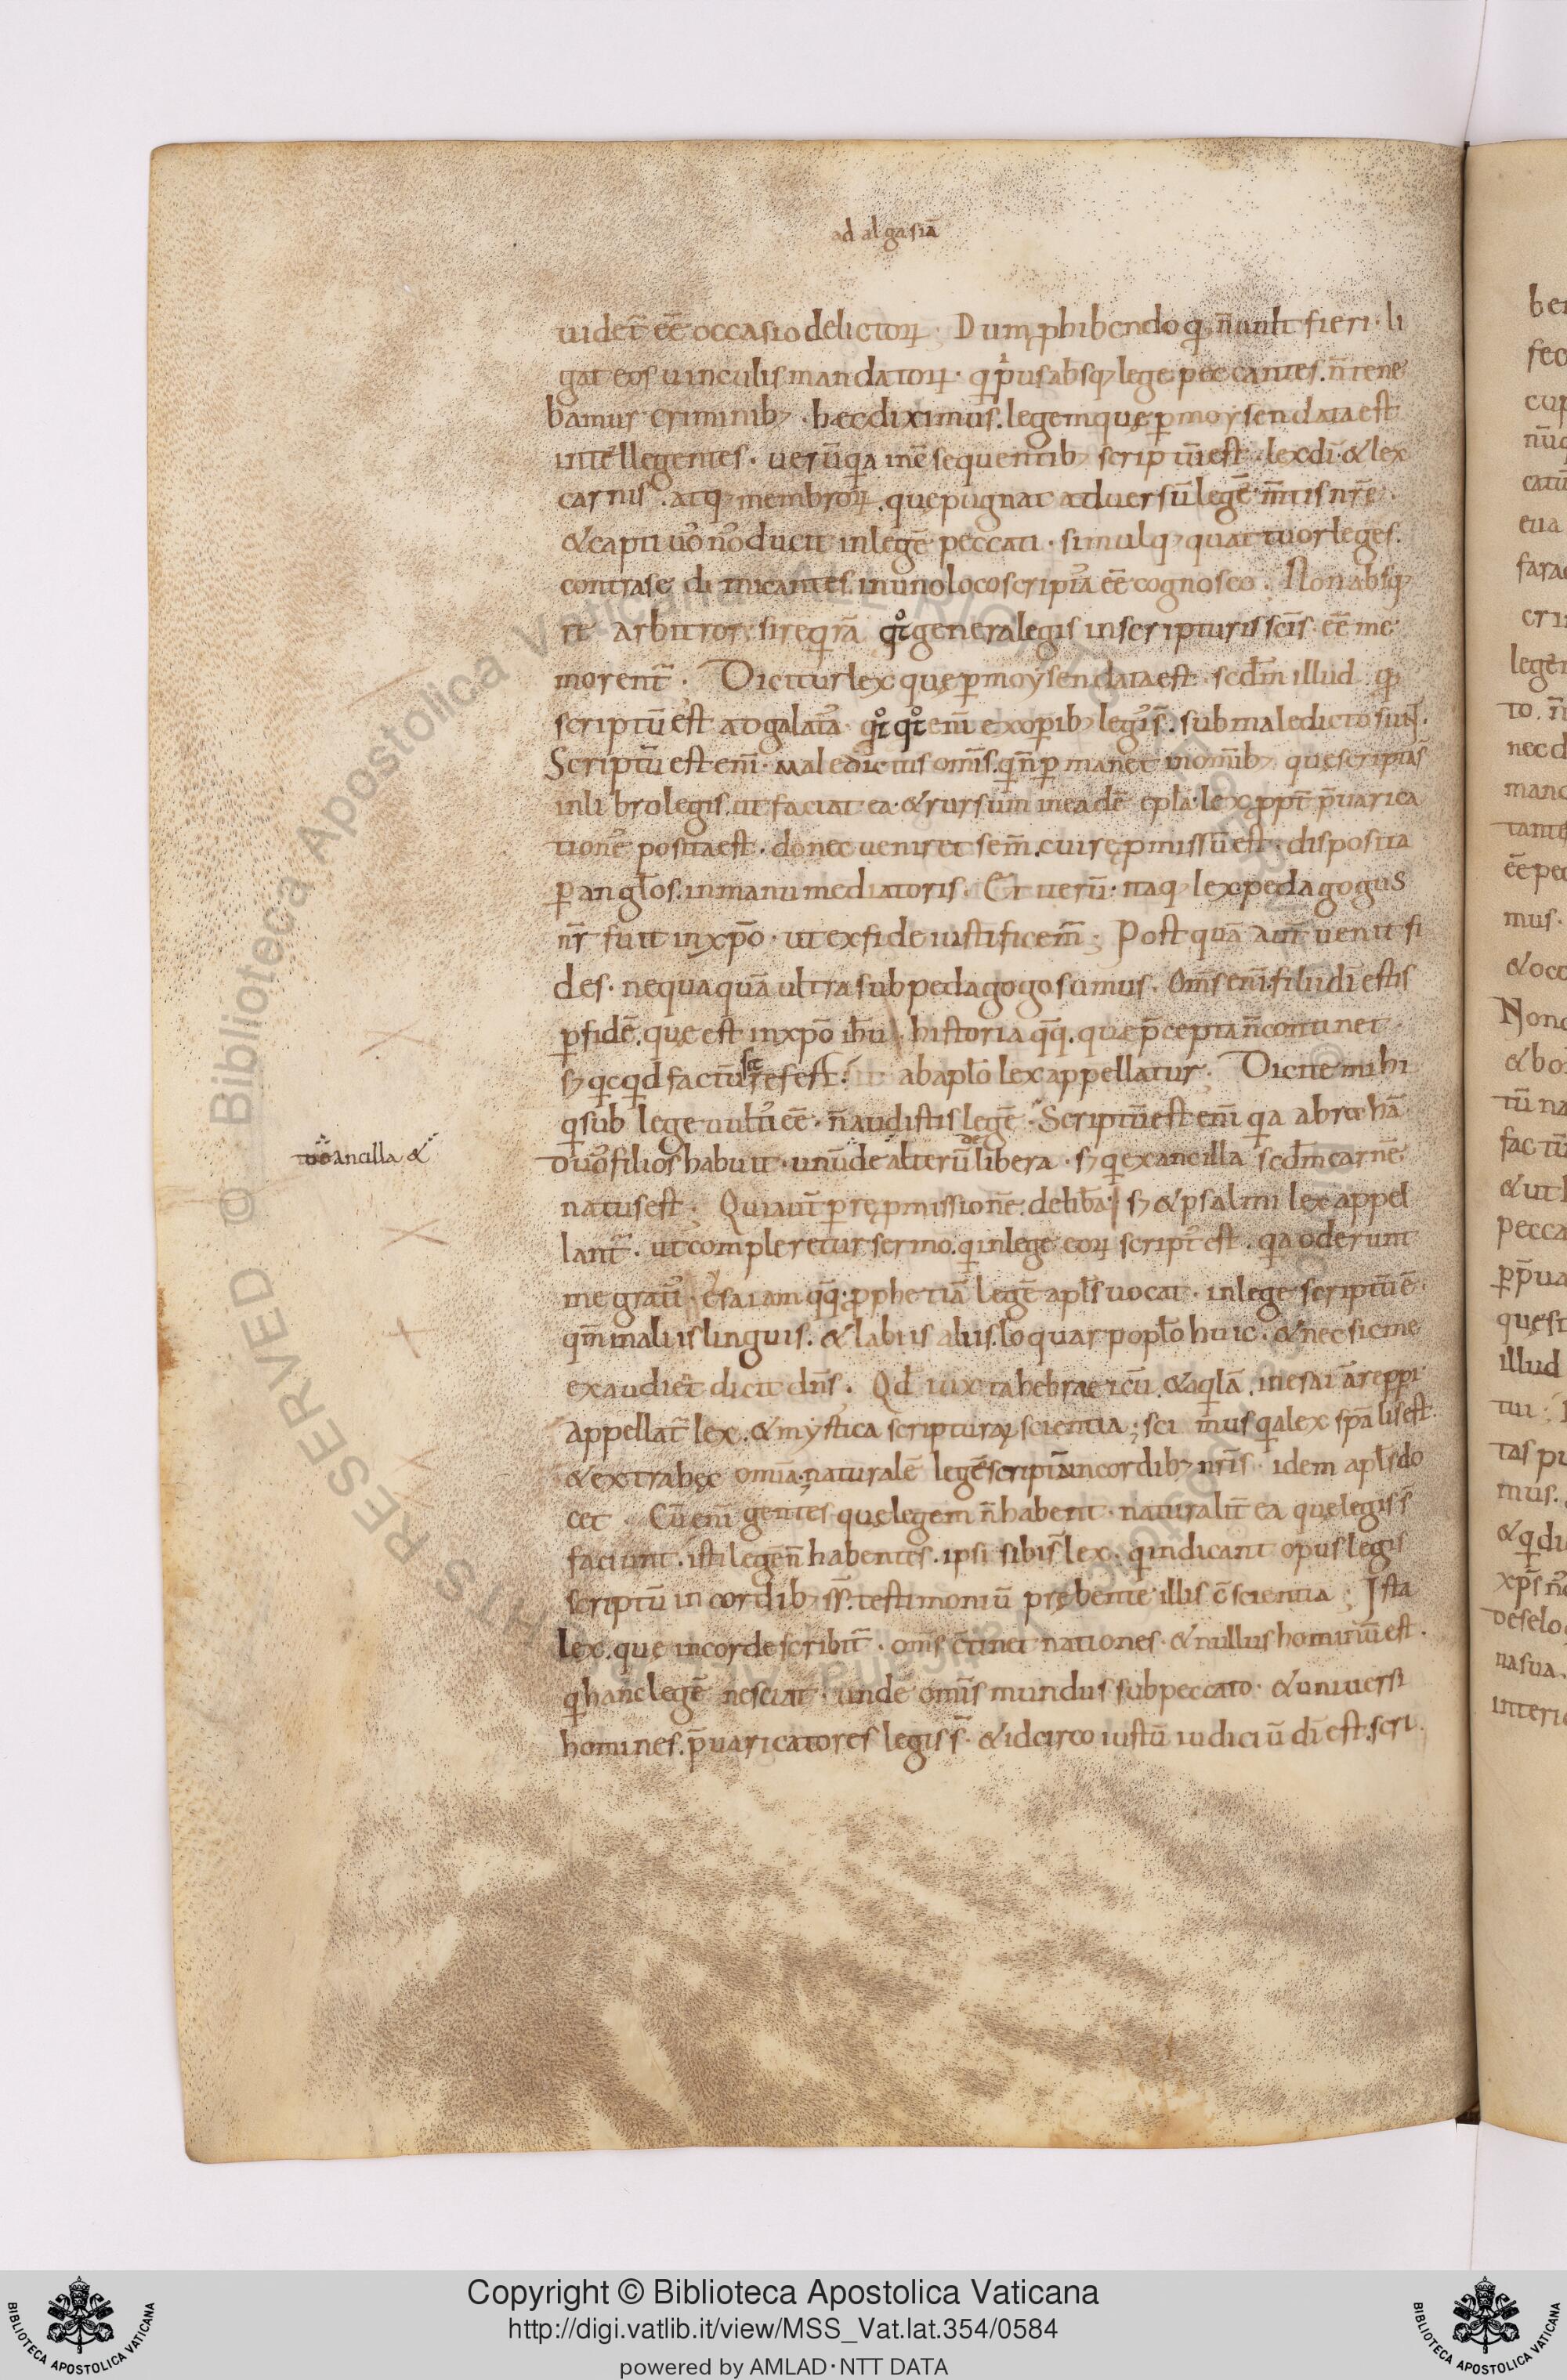 ad algasiā
uidet̄ eē occasio delictoꝝ. Dum ꝓhibendo qđ n̄ uult fieri. li
gat eos uinculis mandatoꝝ. qͥ pͥus absqꝫ lege peccantes. n̄ tene
bamur criminibꝫ. hæc diximus. legem quę ꝑ moysen data est
intellegentes. uerū qa inc̄sequentibꝫ scriptū est. lex dī. & lex
carnis. atqꝫ membroꝝ. quę pugnat aduersū legē m̄tis nr̄ę.
& captiuoͦ noͦ ducit in legē peccati. simulqꝫ quattuor leges.
contra se dimicantes. in uno loco scriptaͦ eē cognosco. Non absqꝫ
re arbitror. si reqrā qͦt genera legis in scripturis scīs eē me
morent̄. Dicitur lex quę ꝑ moysen data est. scdm̄ illud qđ
scriptū est ad galataͦ. qͦt qͦt eni̅ ex opibꝫ legiͦs s̄. sub maledicto sunt.
Scriptū est eni̅. Maledictus omīs. q n̄ ꝑmanet in omībꝫ quę scripta s̄
in libro legis. ut faciat ea. & rursum in eadē epła. lex ꝓpt̄ p̄uarica
tioneͦ posita est. donec ueniret sem̄. cui reꝓmissū est. disposita
ꝑ angłos. in manu mediatoris. Et uerū. itaqꝫ lex pedagogus
nr̄ fuit in xp̄o. ut ex fide iustificem̄. Postquā aut̄ uenit fi
des. nequaquā ultra sub pedagogo sumus. Oms̄ eni̅ filii dī estis
ꝑ fidē. quę est in xp̄o ihū. historia qq̄. quæ p̄cepta n̄ continet.
sꝫ qcqd factū sit refert. ab apło lex appellatur. Dicite mihi
q sub lege uultiͦ eē. n̄ audistis legē. Scriptū est eni̅ qa abrahā
duoͦ filios habuit. unū de alterū de libera. sꝫ q ex ancilla scdm̄ carnē
ancilla &
natus est. Qui aut̄ ꝑ reꝓmissionē. de libā. sꝫ & psalmi lex appel
lant̄. ut compleretur sermo. q in lege eoꝝ scriptͦ est. qa oderunt
me gratiͦ. esaiam qq̄. ꝓphetiā legē apłs uocat. in lege scriptū ē.
qm̄ in aliis linguis. & labiis aliis. loquar popło huic. & nec sic me
exaudient̄ dicit dns̄. Qđ iuxta hebraicū. & aqlā. in esaiā repperi.
Appellat̄ lex. & mystica scripturaꝝ scientia; scimus qa lex spālis est.
& extra hęc omīa. naturalē legē scriptā in cordibꝫ nr̄is. idem apłs do
cet. Cū eni̅ gentes quę legem n̄ habent. naturalit̄ ea quę legis s̄
faciunt. isti legē n̄ habentes. ipsi sibi s̄ lex. q indicant opus legis
scriptū in cordibꝫ ss̄. testimoniū prębente illis c̄scientia; Ista
lex. quę in corde scribit̄. oms̄ c̄tinet nationes. & nullus hominū est.
q hanc legē nesciat. unde omīs mundus sub peccato. & uniuersi
homines. p̄uaricatores legis s̄. & idcirco iustū iudiciū dī est. scri
Copyright © Biblioteca Apostolica Vaticana
http://digi.vatlib.it/view/MSS_Vat.lat.354/0584
powered by AMLAD·NTT DATA
BIBLIOTECA APOSTOLICA VATICANA
BIBLIOTECA APOSTOLICA VATICANA